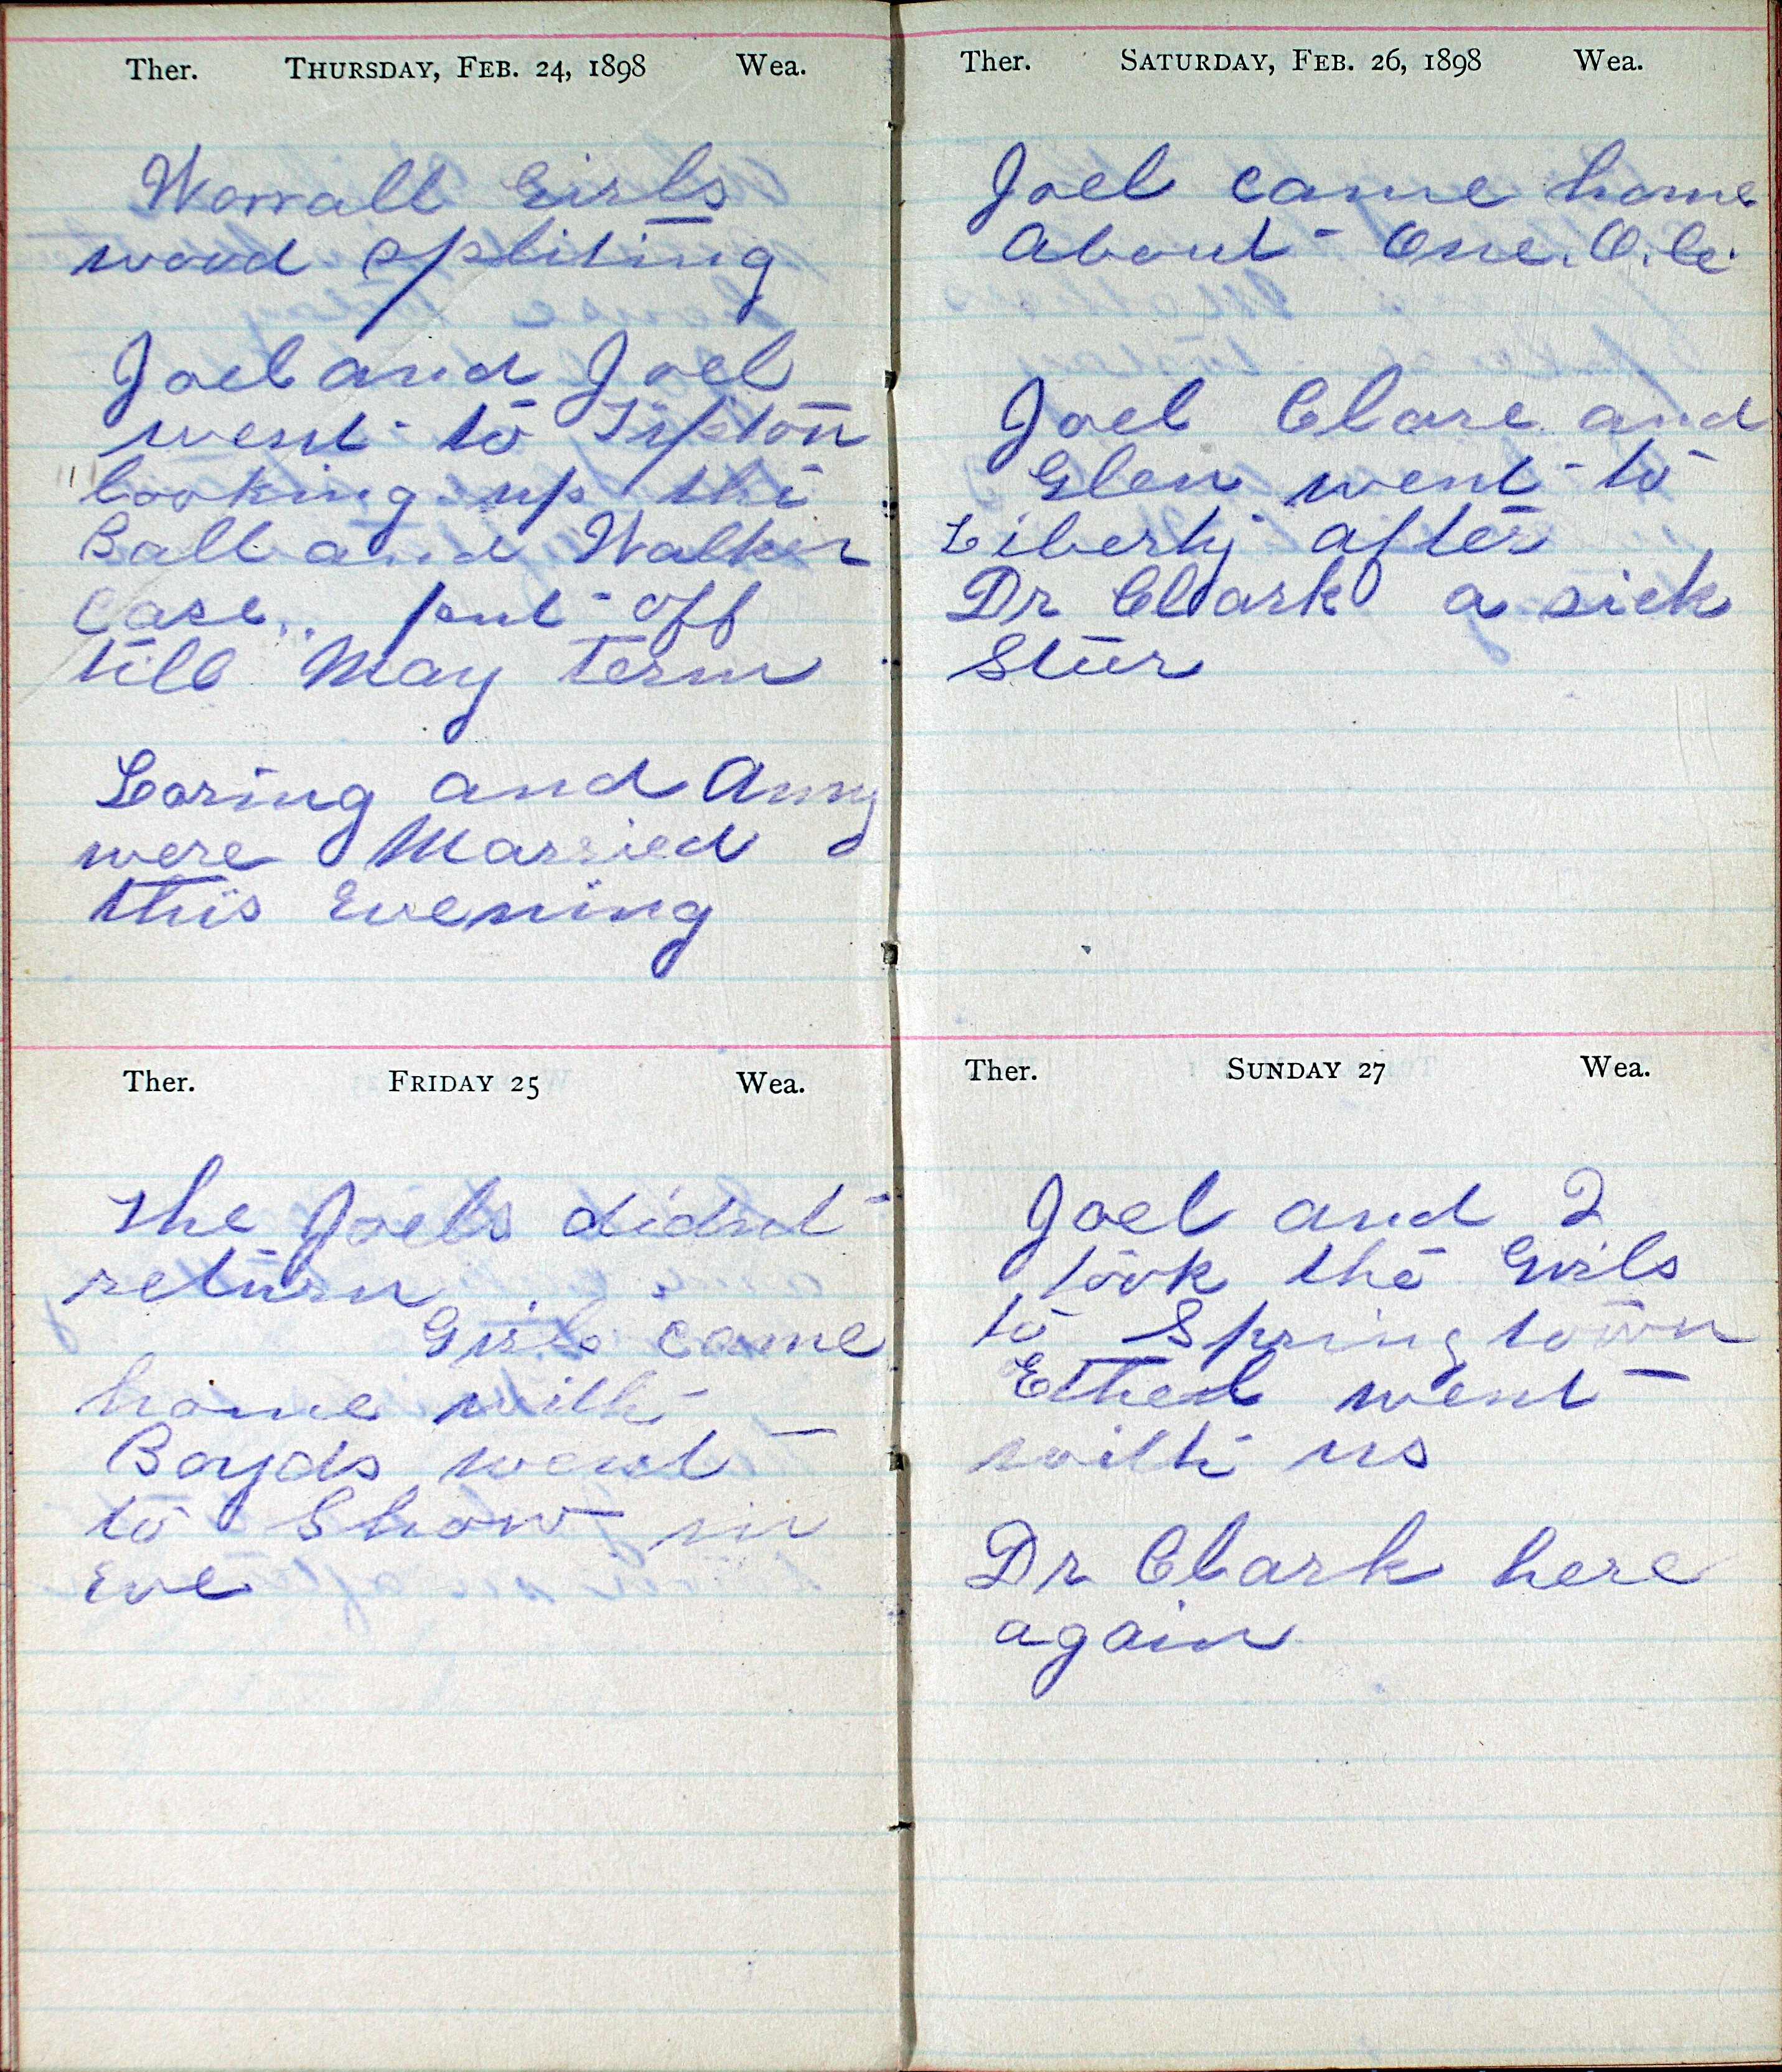 Ther. THURSDAY, FEB. 24, 1898 Wea.
Worrall Girls
wood spliting
Joel and Joel
went to Tipton
looking up the
Ball and Walker
Case.. put off
till May term
Loring and Anny
were Married
this Evening
Ther. FRIDAY 25 Wea.
The Joels didnt
return
Girls came
home with
Boyds went
to Show in
Eve
Ther. SATURDAY, FEB. 26, 1898 Wea.
Joel came home
About One. O. Cl.
Joel Clare and
Glen went to
Liberty after
Dr Clark a sick
Steer
Ther. SUNDAY 27 Wea.
Joel and I
took the Girls
to Springtown
Ethel went
with us
Dr Clark here
again